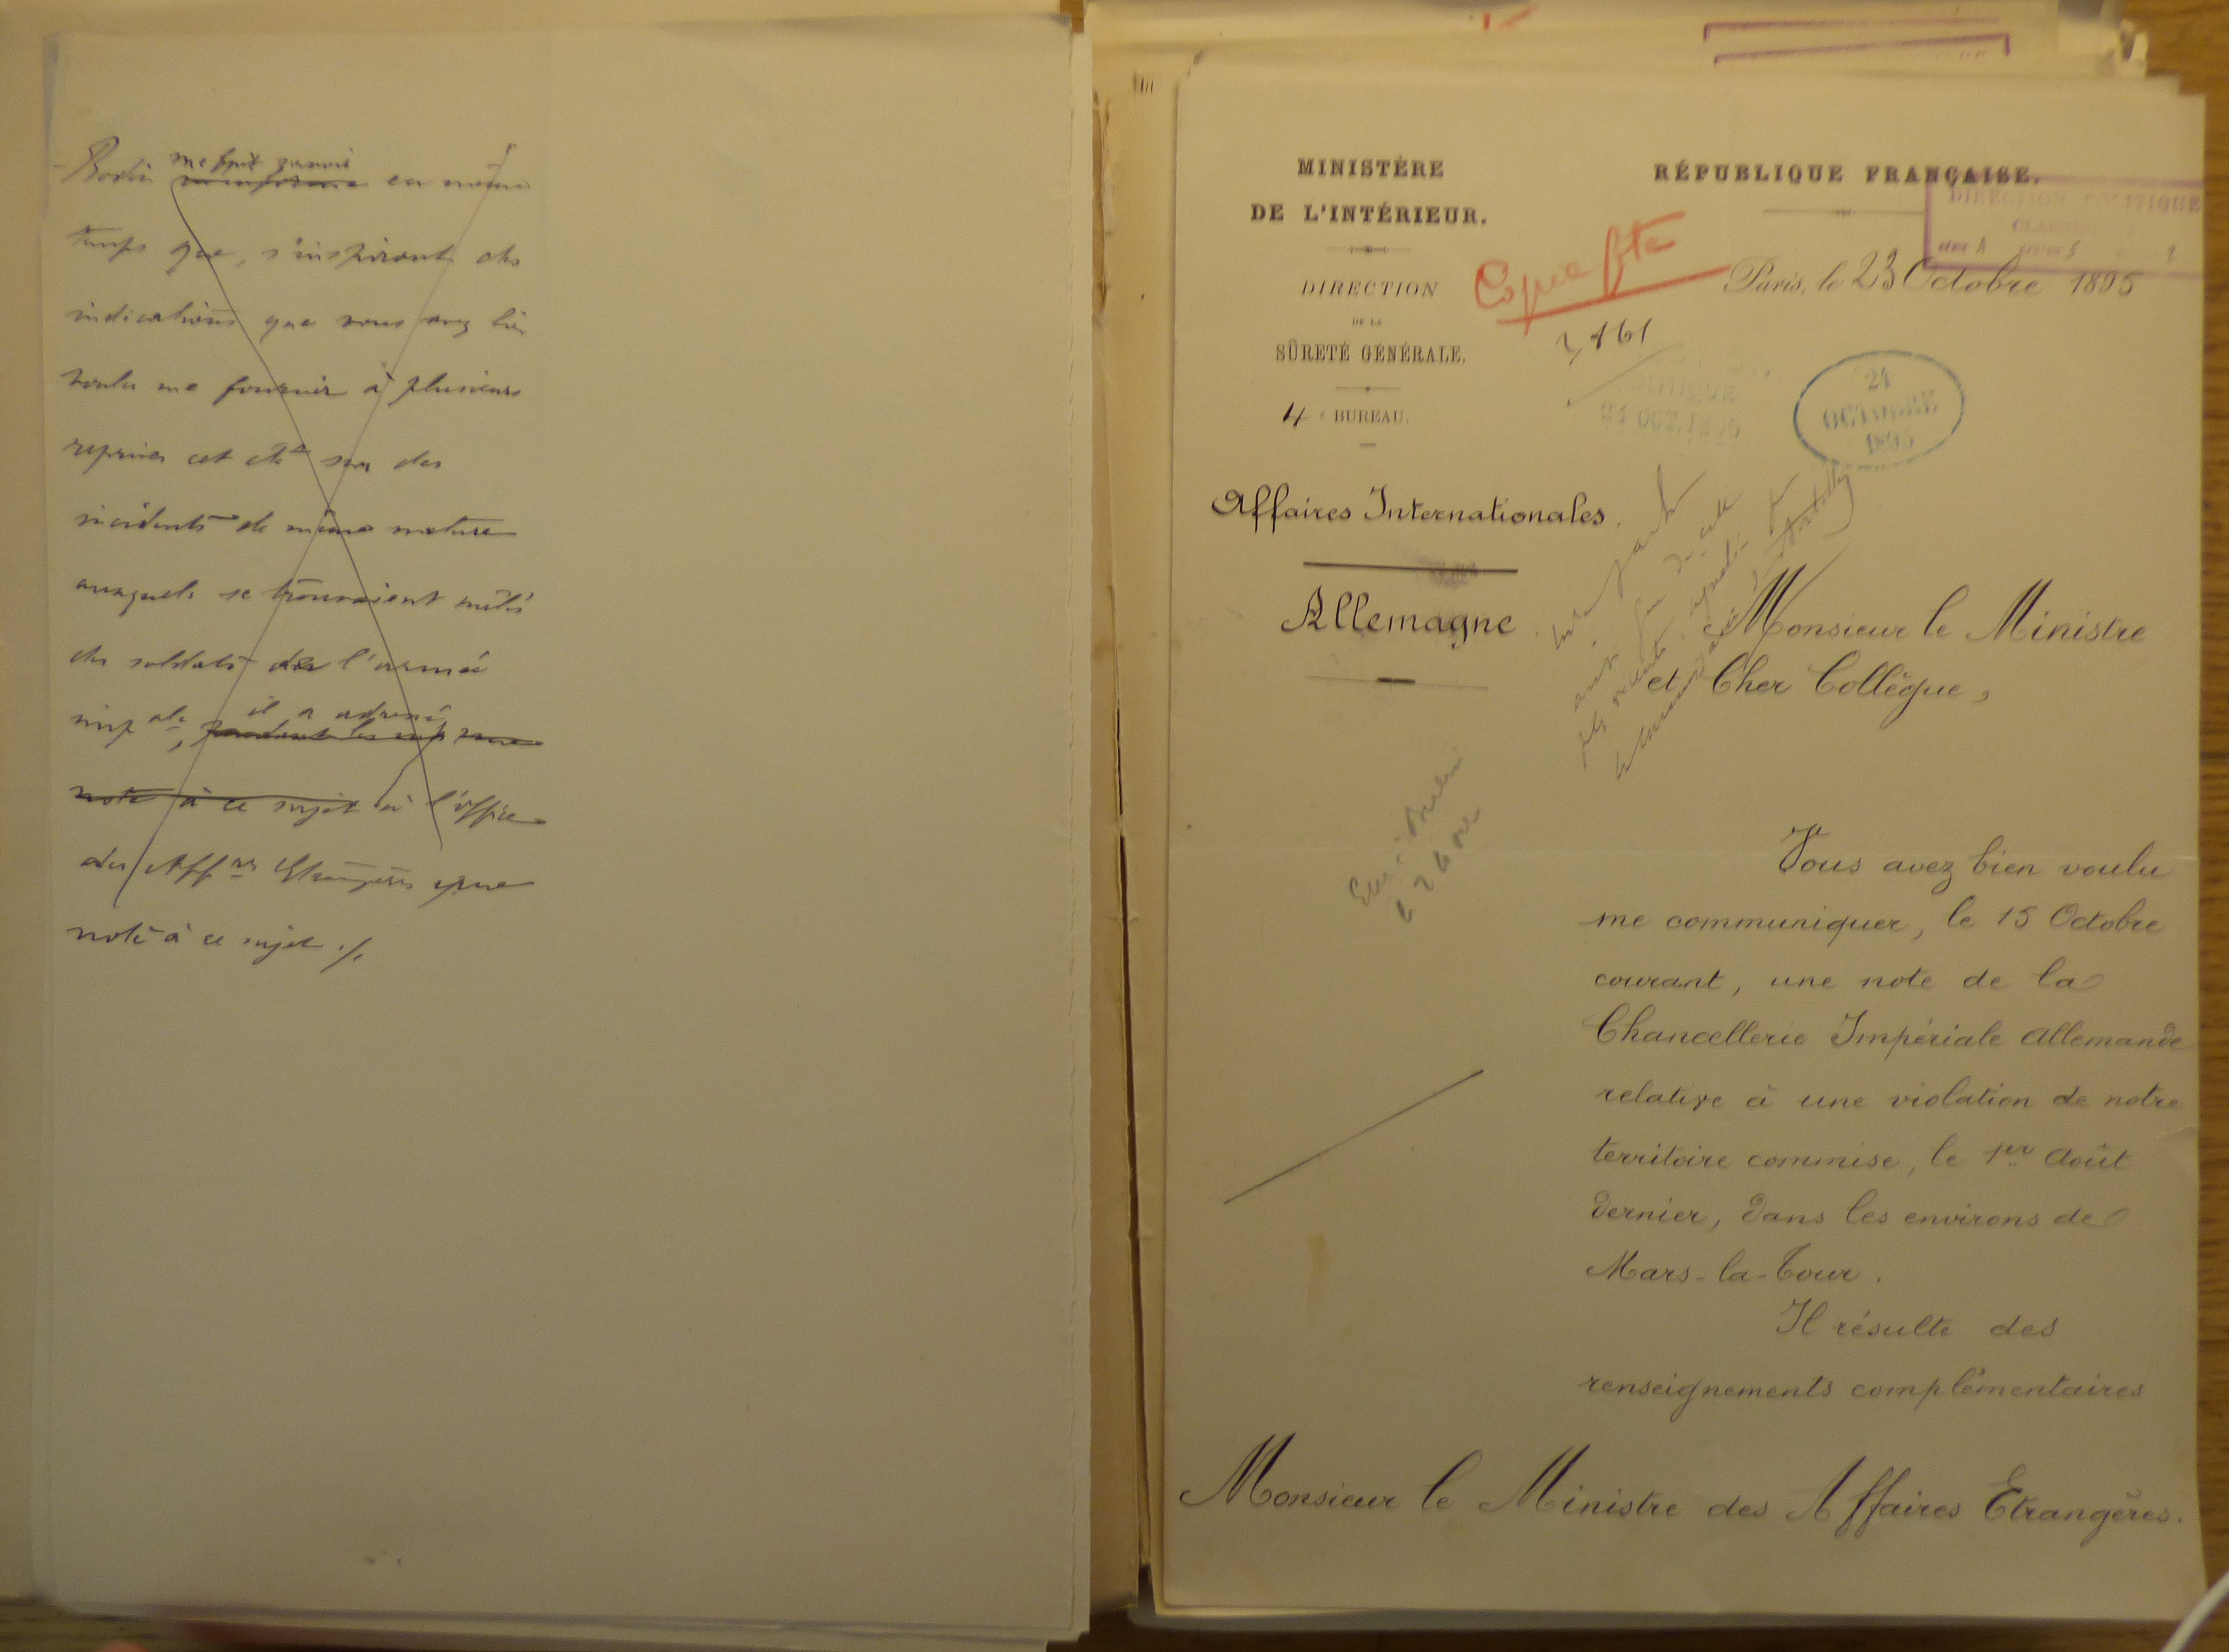 me fait savoir
Berlin m'informe en même
temps que, s'inspirant des
indications que vous avez bien
voulu me fournir à plusieurs
reprises cet été sur des
incidents de même nature
auxquels se trouvaient mêlés
des soldats de l'armée
il a adressé
imp ale,
note à ce sujet à l'office
des Aff res Etrangères une
note à ce sujet ./.
MINISTÈRE
DE L'INTÉRIEUR.
DIRECTION
DE LA
SÛRETÉ GÉNÉRALE.
4 e BUREAU.
Affaires Internationales.
Allemagne
RÉPUBLIQUE FRANÇAISE.
DIRECTION POLITIQUE
Copie fte
Paris, le 23 Octobre 1895
POLITIQUE
24 OCT. 1895
24
OCTOBRE
1895
Monsieur le Ministre
et Cher Collègue,
Vous avez bien voulu
me communiquer, le 15 Octobre
courant, une note de la
Chancellerie Impériale Allemande
relative à une violation de notre
territoire commise, le 1er Août
dernier, dans les environs de
Mars-la-Tour.
Il résulte des
renseignements complémentaires
Monsieur le Ministre des Affaires Etrangères.